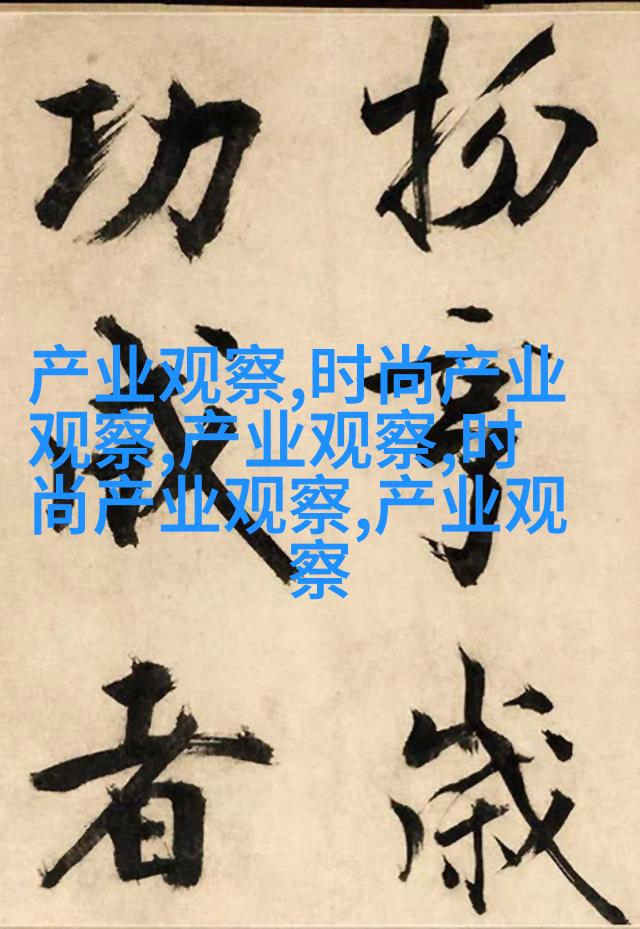 物亨歲
功成者
产业观察,时尚产业
观察,产业观察,时
尚产业观察,产业观
察